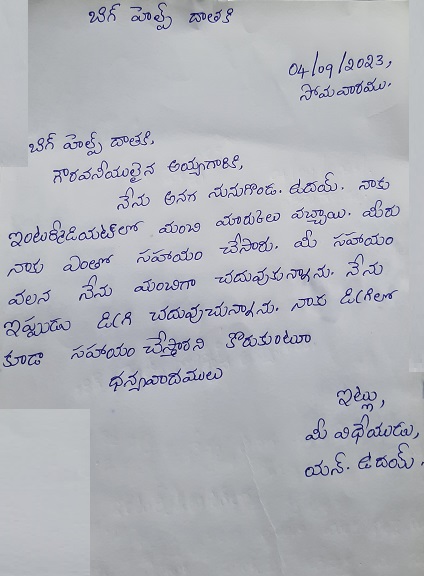 బిగ్ హెల్ప్ దాతకి
04/09/2023,
సోమవారము.
బిగ్ హెల్ప్ దాతకి,
గౌరవనీయులైన అయ్యగారికి,
నేను అనగ నునుగొండ. ఉదయ్. నాకు
ఇంటర్మీడియట్‌లో మంచి మారుకులు వచ్చాయి. మీరు
నాకు ఎంతో సహాయం చేసారు. మీ సహాయం
వలన నేను మంచిగా చదువుకున్నాను. నేను
ఇప్పుడు డిగ్రి చదువుచున్నాను. నాకు డిగ్రిలో
కూడా సహాయం చేస్తారని కొరుకుంటూ
ధన్యవాదములు
ఇట్లు,
మీ విధేయుడు,
యన్. ఉదయ్.